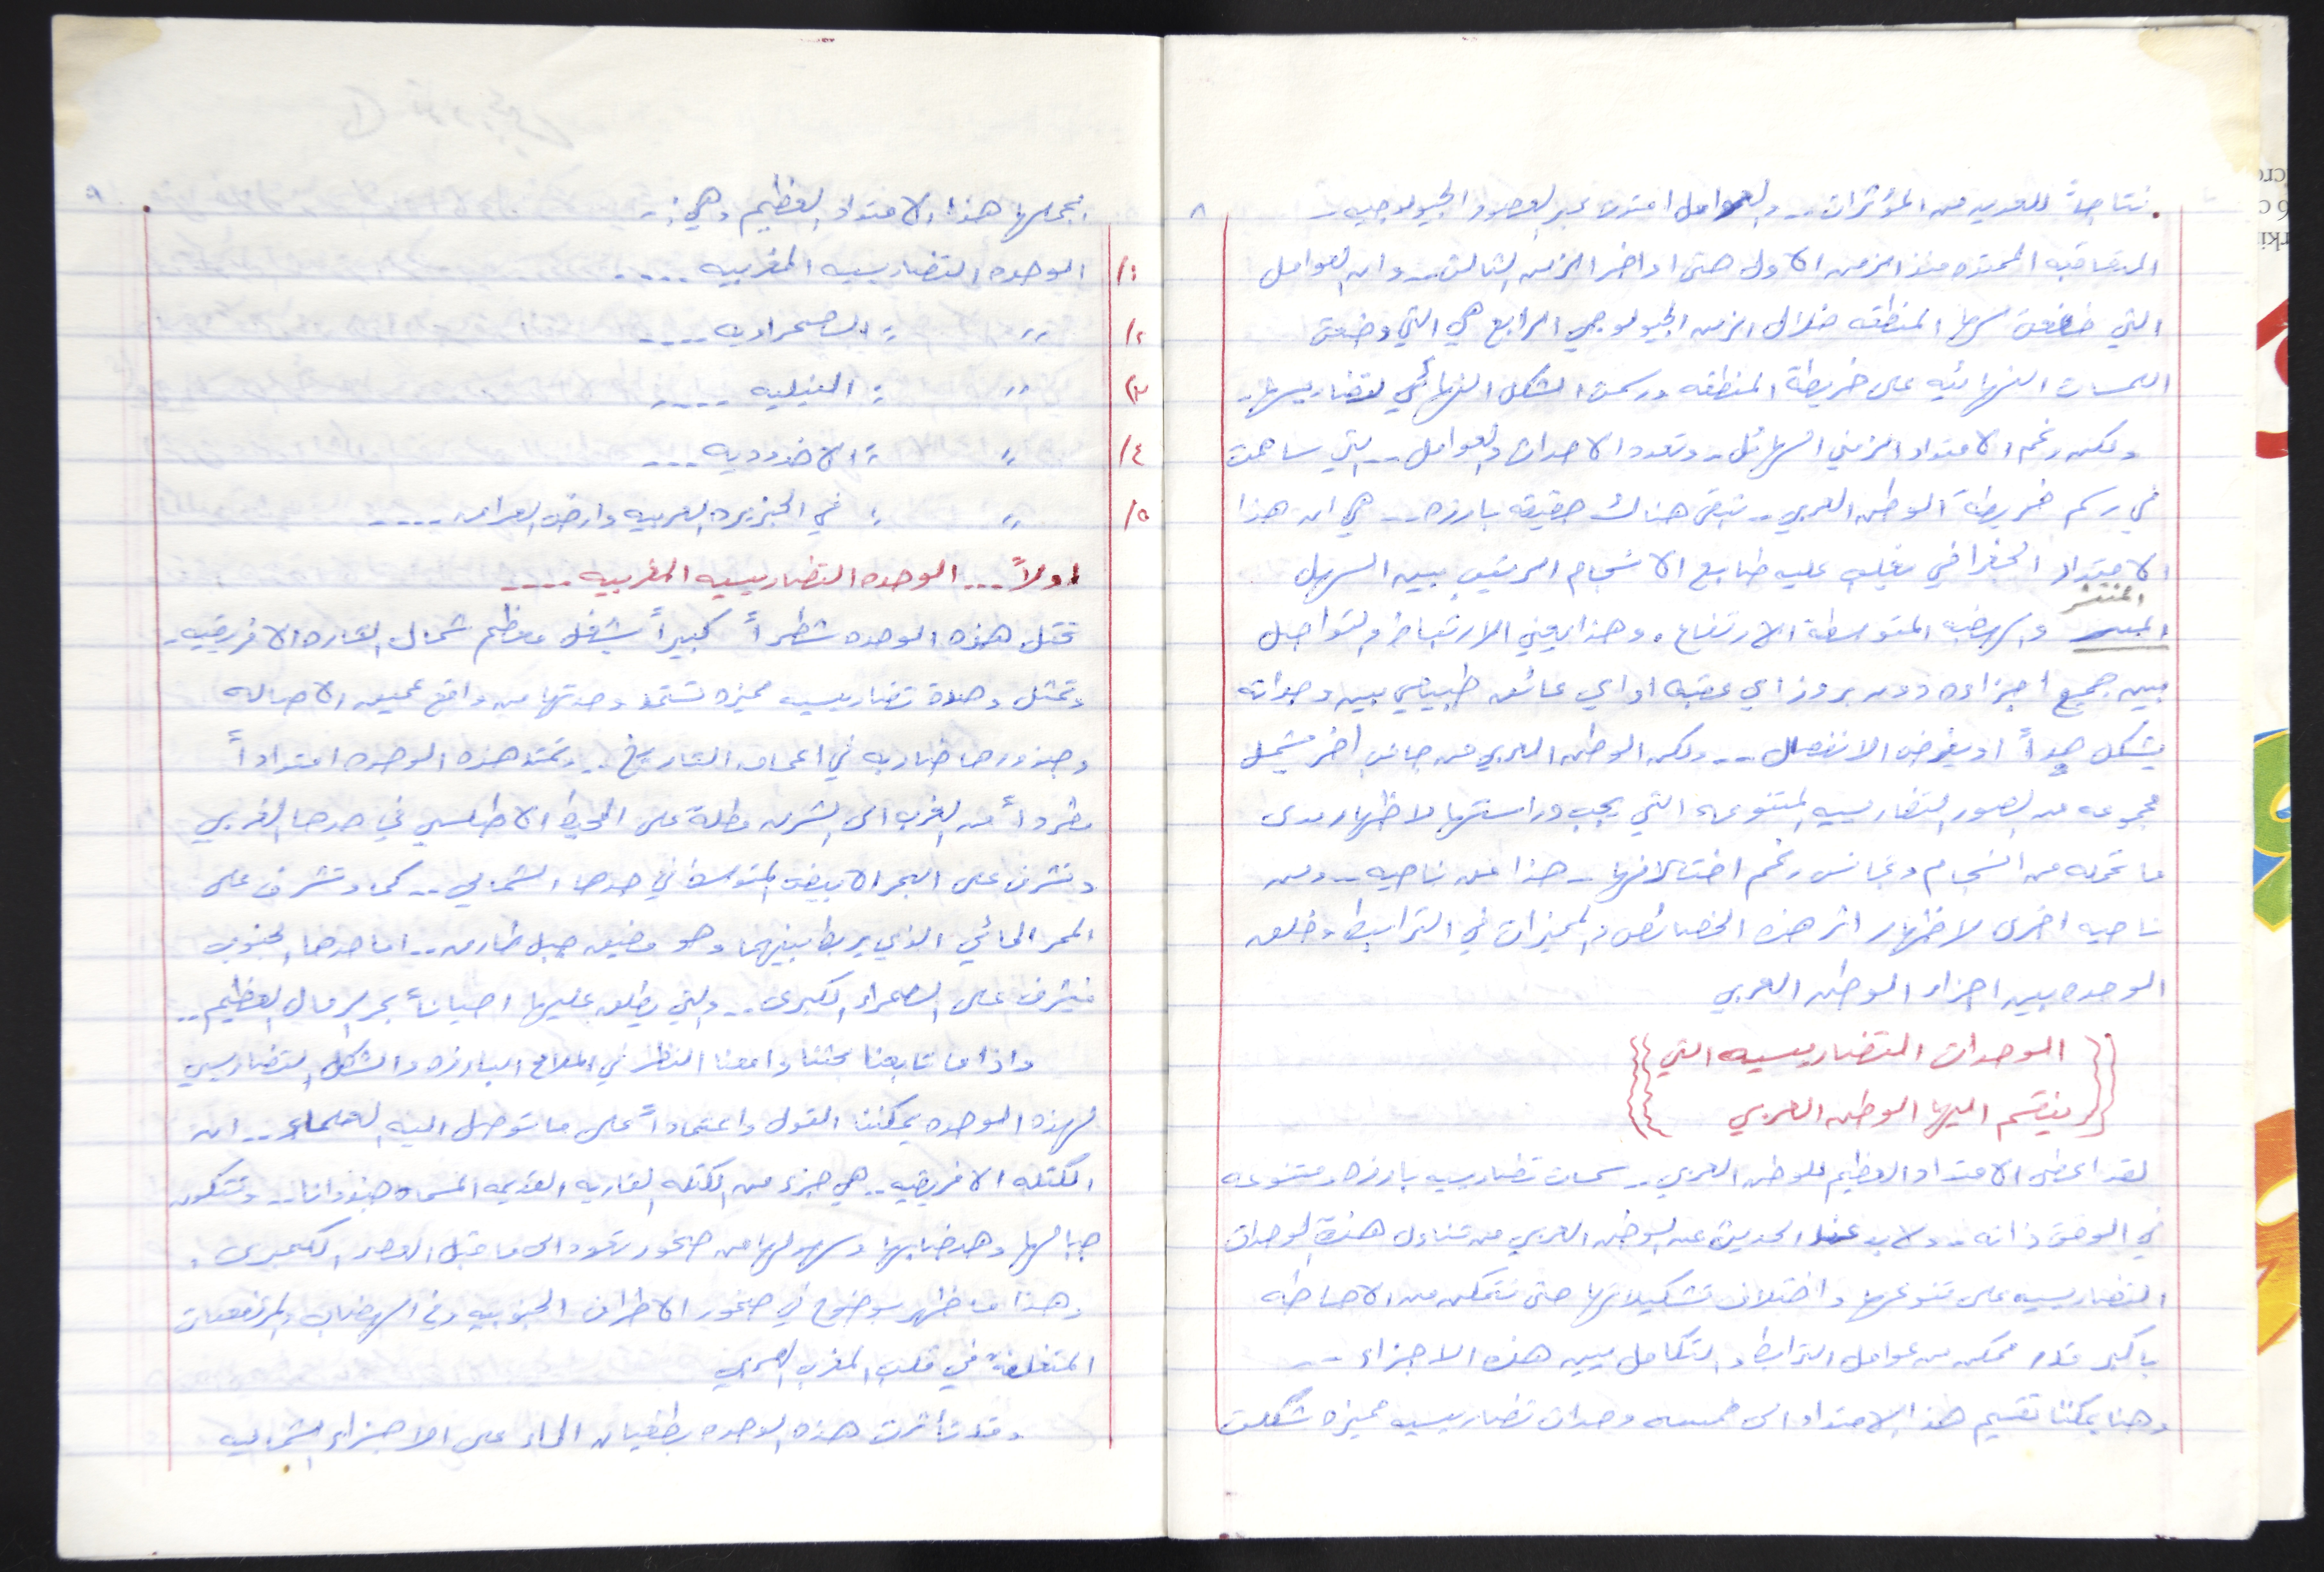 نتاجاً للعديد من المؤثرات .. والعوامل امتدت عبر العصور الجيولوجيه ..
٨
المتعاقبه الممتده منذ الزمن الاول حتى اواخر الزمن الثالث .. وان العوامل
التي خضعت لها المنطقه خلال الزمن الجيولوجي الرابع هي التي وضعت
اللمسات النهائيه على خريطة المنطقه ورسمت الشكل النهائي لتضاريسها ..
ولكن رغم الامتداد الزمني الهائل .. وتعدد الاحداث والعوامل .. التي ساهمت
في رسم خريطة الوطن العربي .. تبقى هناك حقيقه بارزه .. هي ان هذا
الامتداد الجغرافي يغلب عليه طابع الانسجام الرتيب بين السهل
المنتشر
والهضبه المتوسطة الارتفاع . وهذا يعني الارتباط والتواصل
بين جميع اجزاءه دون بروز اي عقبه او اي عائق طبيعي بين وحداته
يشكل حداً او يفرض الانفصال ... ولكن الوطن العربي من جانب اخر يشمل
مجموعه من الصور التضاريسيه المتنوعه التي يجب دراستها لاظهار مدى
ما تحمله من انسجام وتجانس رغم اختلافها .. هذا من ناحيه .. ومن
ناحيه اخرى لاظهار اثر هذه الخصائص والمميزات في الترابط وخلق
الوحده بين اجزاء الوطن العربي
الوحدات التضاريسيه التي
ينقسم اليها الوطن العربي
لقد اعطى الامتداد العظيم للوطن العربي .. سمات تضاريسيه بارزه ومتنوعه
في الوقت ذاته .. ولابد عند الحديث عن الوطن العربي من تناول هذه الوحدات
التضاريسيه على تنوعها واختلاف تشكيلاتها حتى نتمكن من الاحاطه
باكبر قدر ممكن من عوامل الترابط والتكامل بين هذه الاجزاء ..
وهنا يمكننا تقسيم هذا الامتداد الى خمسه وحدات تضاريسيه مميزه شكلت
٩
بمجملها هذا الامتداد العظيم وهي :.
١/ الوحده التضاريسيه المغربيه ....
٢/ ״ ״ الصحراويه ....
٣/ ״ ״ النيليه ....
٤/ ״ ״ الاخدوديه ...
٥/ ״ ״ في الجزيره العربيه وارض العراق ....
اولاً ... الوحده التضاريسيه المغربيه ....
تحتل هذه الوحده شطراً كبيراً يشغل معظم شمال القاره الافريقيه ..
وتمثل وحدة تضاريسيه مميزه تستمد وحدتها من واقع عميق الاصاله
وجذورها ضاربه في اعماق التاريخ .. وتمتد هذه الوحده امتداداً
مطرداً من الغرب الى الشرق مطلة على المحيط الاطلسي في حدها الغربي
وتشرف على البحر الابيض المتوسط في حدها الشمالي .. كما وتشرف على
الممر المائي الذي يربط بينهما وهو مضيق جبل طارق .. اما حدها الجنوبي
فيشرف على الصحراء الكبرى .. والتي يطلق عليها احياناً بحر الرمال العظيم ..
واذا ما تابعنا بحثنا وامعنا النظر في الملامح البارزه والشكل التضاريسي
لهذه الوحده يمكننا القول واعتماداً على ما توصل اليه العلماء .. ان
الكتله الافريقيه .. هي جزء من الكتله القاريه القديمه المسماه جندوانا .. وتتكون
جبالها وهضابها وسهولها من صخور تعود الى ما قبل العصر الكمبري .
وهذا ما ظهر بوضوح في صخور الاطراف الجنوبيه وفي الهضاب والمرتفعات
المتغلغلة في قلب المغرب العربي
وقد تاثرت هذه الوحده بطغيان الماء على الاجزاء الشماليه